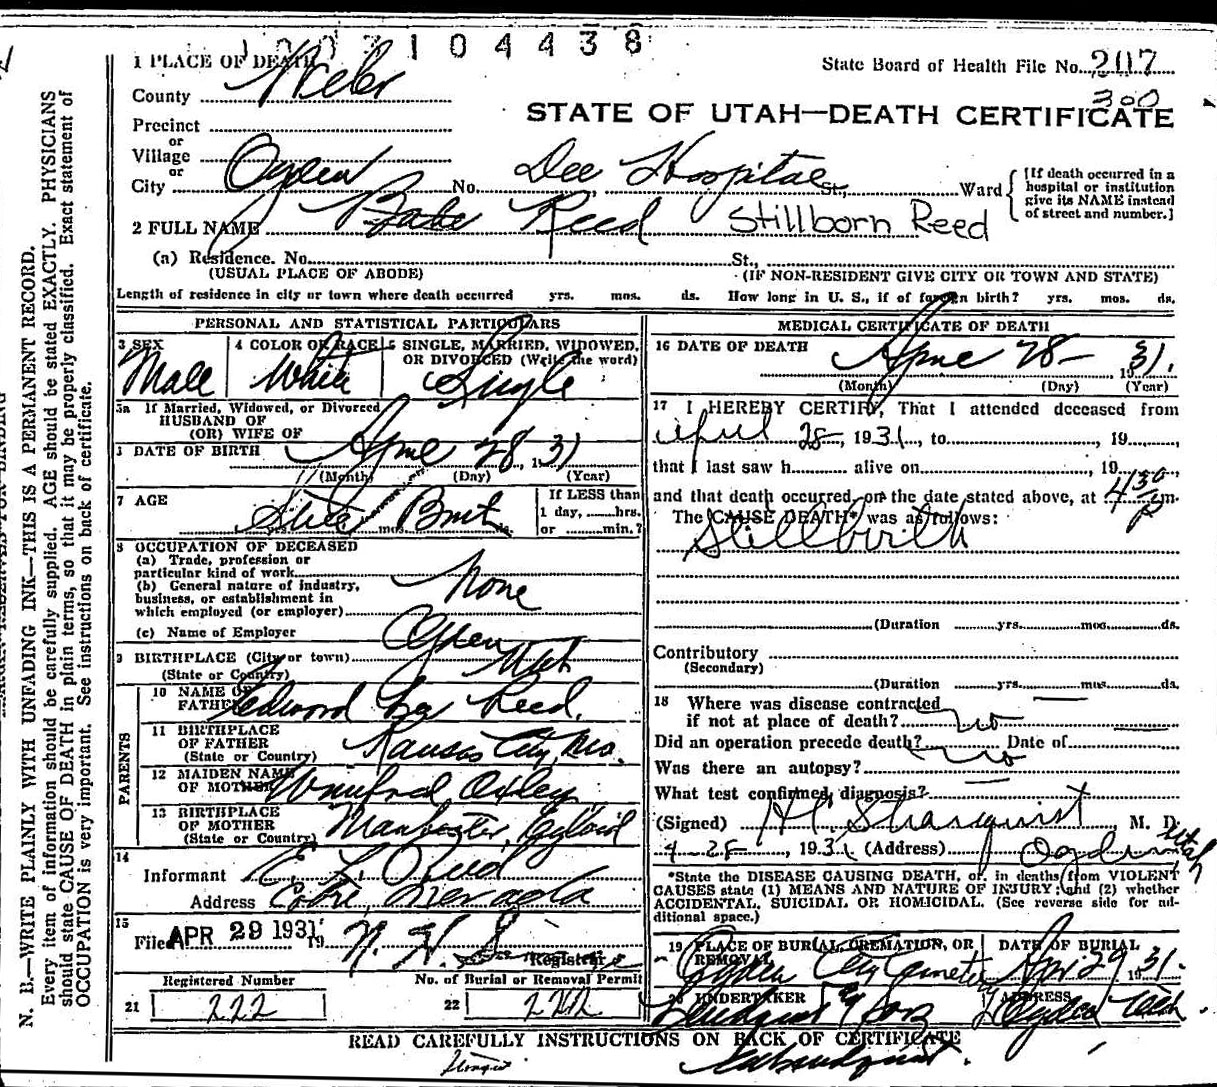 1007104438
1 PLACE OF DEATH
State Board of Health File No. 207
300
County Weber
STATE OF UTAH—DEATH CERTIFICATE
Precinct
or
Village
or
City Ogden No. Dee Hospital St., Ward
[If death occurred in a hospital or institution give its NAME instead of street and number.]
2 FULL NAME Babe Reed Stillborn Reed
(a) Residence. No. St.,
(USUAL PLACE OF ABODE) (IF NON-RESIDENT GIVE CITY OR TOWN AND STATE)
Length of residence in city or town where death occurred yrs. mos. ds. How long in U. S., if of foreign birth? yrs. mos. ds.
PERSONAL AND STATISTICAL PARTICULARS
3 SEX
Male
4 COLOR OR RACE
White
5 SINGLE, MARRIED, WIDOWED,
OR DIVORCED (Write the word)
Single
5a If Married, Widowed, or Divorced
HUSBAND OF
(OR) WIFE OF
DATE OF BIRTH April 28, 1931
(Month) (Day) (Year)
7 AGE
yrs. mos. ds.
If LESS than
1 day, hrs.
or min.?
8 OCCUPATION OF DECEASED
(a) Trade, profession or
particular kind of work None
(b) General nature of industry,
business, or establishment in
which employed (or employer)
(c) Name of Employer
9 BIRTHPLACE (City or town) Ogden
(State or Country) Utah
PARENTS
10 NAME OF
FATHER Edward Reed.
11 BIRTHPLACE
OF FATHER
(State or Country) Kansas City, Mo.
12 MAIDEN NAME
OF MOTHER Winifred Oxley
13 BIRTHPLACE
OF MOTHER
(State or Country) Manchester,
14
Informant E. L. Reed
Address Nevada
15
Filed APR 29 1931 19 N. H.
Registrar
Registered Number
21 222
No. of Burial or Removal Permit
22 222
MEDICAL CERTIFICATE OF DEATH
16 DATE OF DEATH April 28- 1931.
(Month) (Day) (Year)
17 I HEREBY CERTIFY, That I attended deceased from
April 28, 1931, to , 19
that I last saw h alive on , 19
and that death occurred, on the date stated above, at 430 p m.
The CAUSE DEATH* was as follows:
Stillbirth
(Duration yrs. mos. ds.
Contributory
(Secondary)
(Duration yrs. mos. ds.
18 Where was disease contracted
if not at place of death? no
Did an operation precede death? no Date of
Was there an autopsy?
What test confirmed diagnosis?
(Signed) Stranquist M. D.
4-28, 1931 (Address) Ogden Utah
*State the DISEASE CAUSING DEATH, or, in deaths from VIOLENT
CAUSES state (1) MEANS AND NATURE OF INJURY; and (2) whether
ACCIDENTAL, SUICIDAL OR HOMICIDAL. (See reverse side for additional space.)
19 PLACE OF BURIAL, CREMATION, OR
REMOVAL
Ogden City Cemetery
DATE OF BURIAL
Apr 29 1931.
20 UNDERTAKER
Lindquist & Sons
ADDRESS
Ogden Utah
READ CAREFULLY INSTRUCTIONS ON BACK OF CERTIFICATE
N. B.—WRITE PLAINLY WITH UNFADING INK—THIS IS A PERMANENT RECORD.
Every item of information should be carefully supplied. AGE should be stated EXACTLY. PHYSICIANS
should state CAUSE OF DEATH in plain terms, so that it may be properly classified. Exact statement of
OCCUPATION is very important. See instructions on back of certificate.